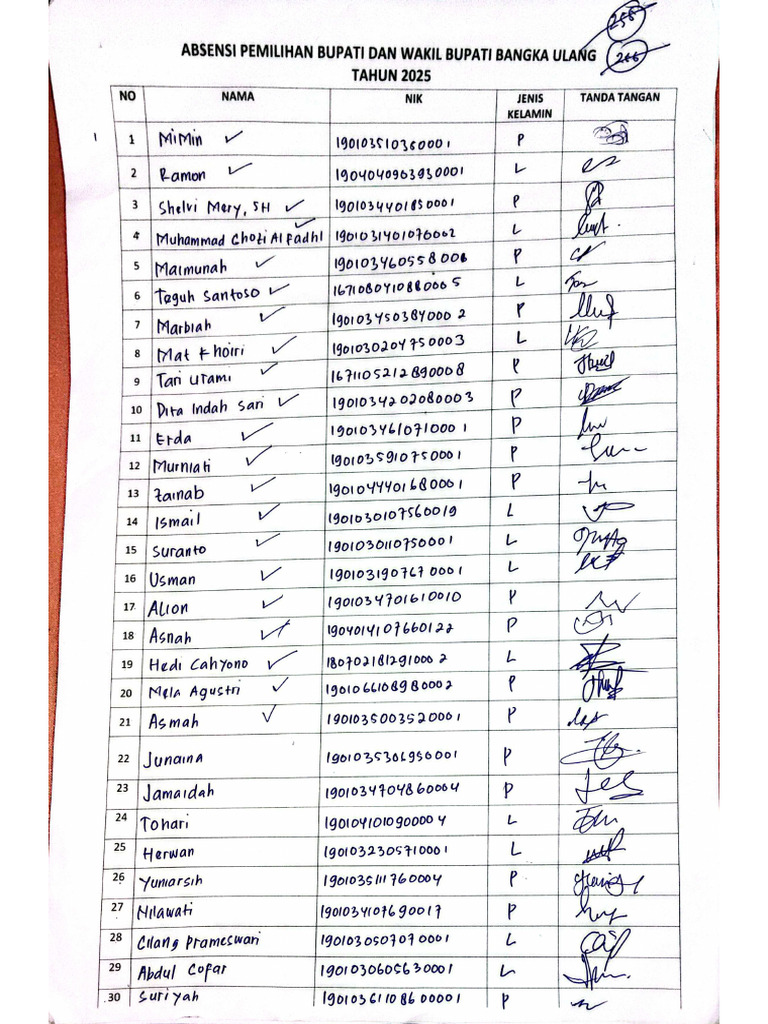 258
266
ABSENSI PEMILIHAN BUPATI DAN WAKIL BUPATI BANGKA ULANG
TAHUN 2025
NO NAMA NIK JENIS KELAMIN TANDA TANGAN
1 MiMin 1901035103600001 P
2 Ramon 1904040963930001 L
3 Shelvi Mery, SH 1901034401830001 P
4 Muhammad Ghozi Al Fadhl 1901031401076002 L
5 Maimunah 1901034605580006 P
6 Teguh Santoso 1671080410880005 L
7 Marbiah 1901034503840002 P
8 Mat Khoiri 1901030204750003 L
9 Tari Utami 1671105212890008 P
10 Dita Indah Sari 1901034202080003 P
11 Erda 1901034610710001 P
12 Murniati 1901035910750001 P
13 Zainab 1901044401680001 P
14 Ismail 1901030107560019 L
15 Suranto 1901030110750001 L
16 Usman 1901031907670001 L
17 Alion 1901034701610010 P
18 Asnah 1904014107660122 P
19 Hedi Cahyono 1807021812910002 L
20 Mela Agustri 1901066108980002 P
21 Asmah 1901035003520001 P
22 Junaina 1901035306950001 P
23 Jamaidah 1901034704860004 P
24 Tohari 1901041010900004 L
25 Herwan 1901032305710001 L
26 Yuniarsih 1901035111760004 P
27 Nilawati 1901034107690017 P
28 Gilang Prameswari 1901030507070001 L
29 Abdul Gofar 1901030605630001 L
30 Suriyah 1901036110860001 P